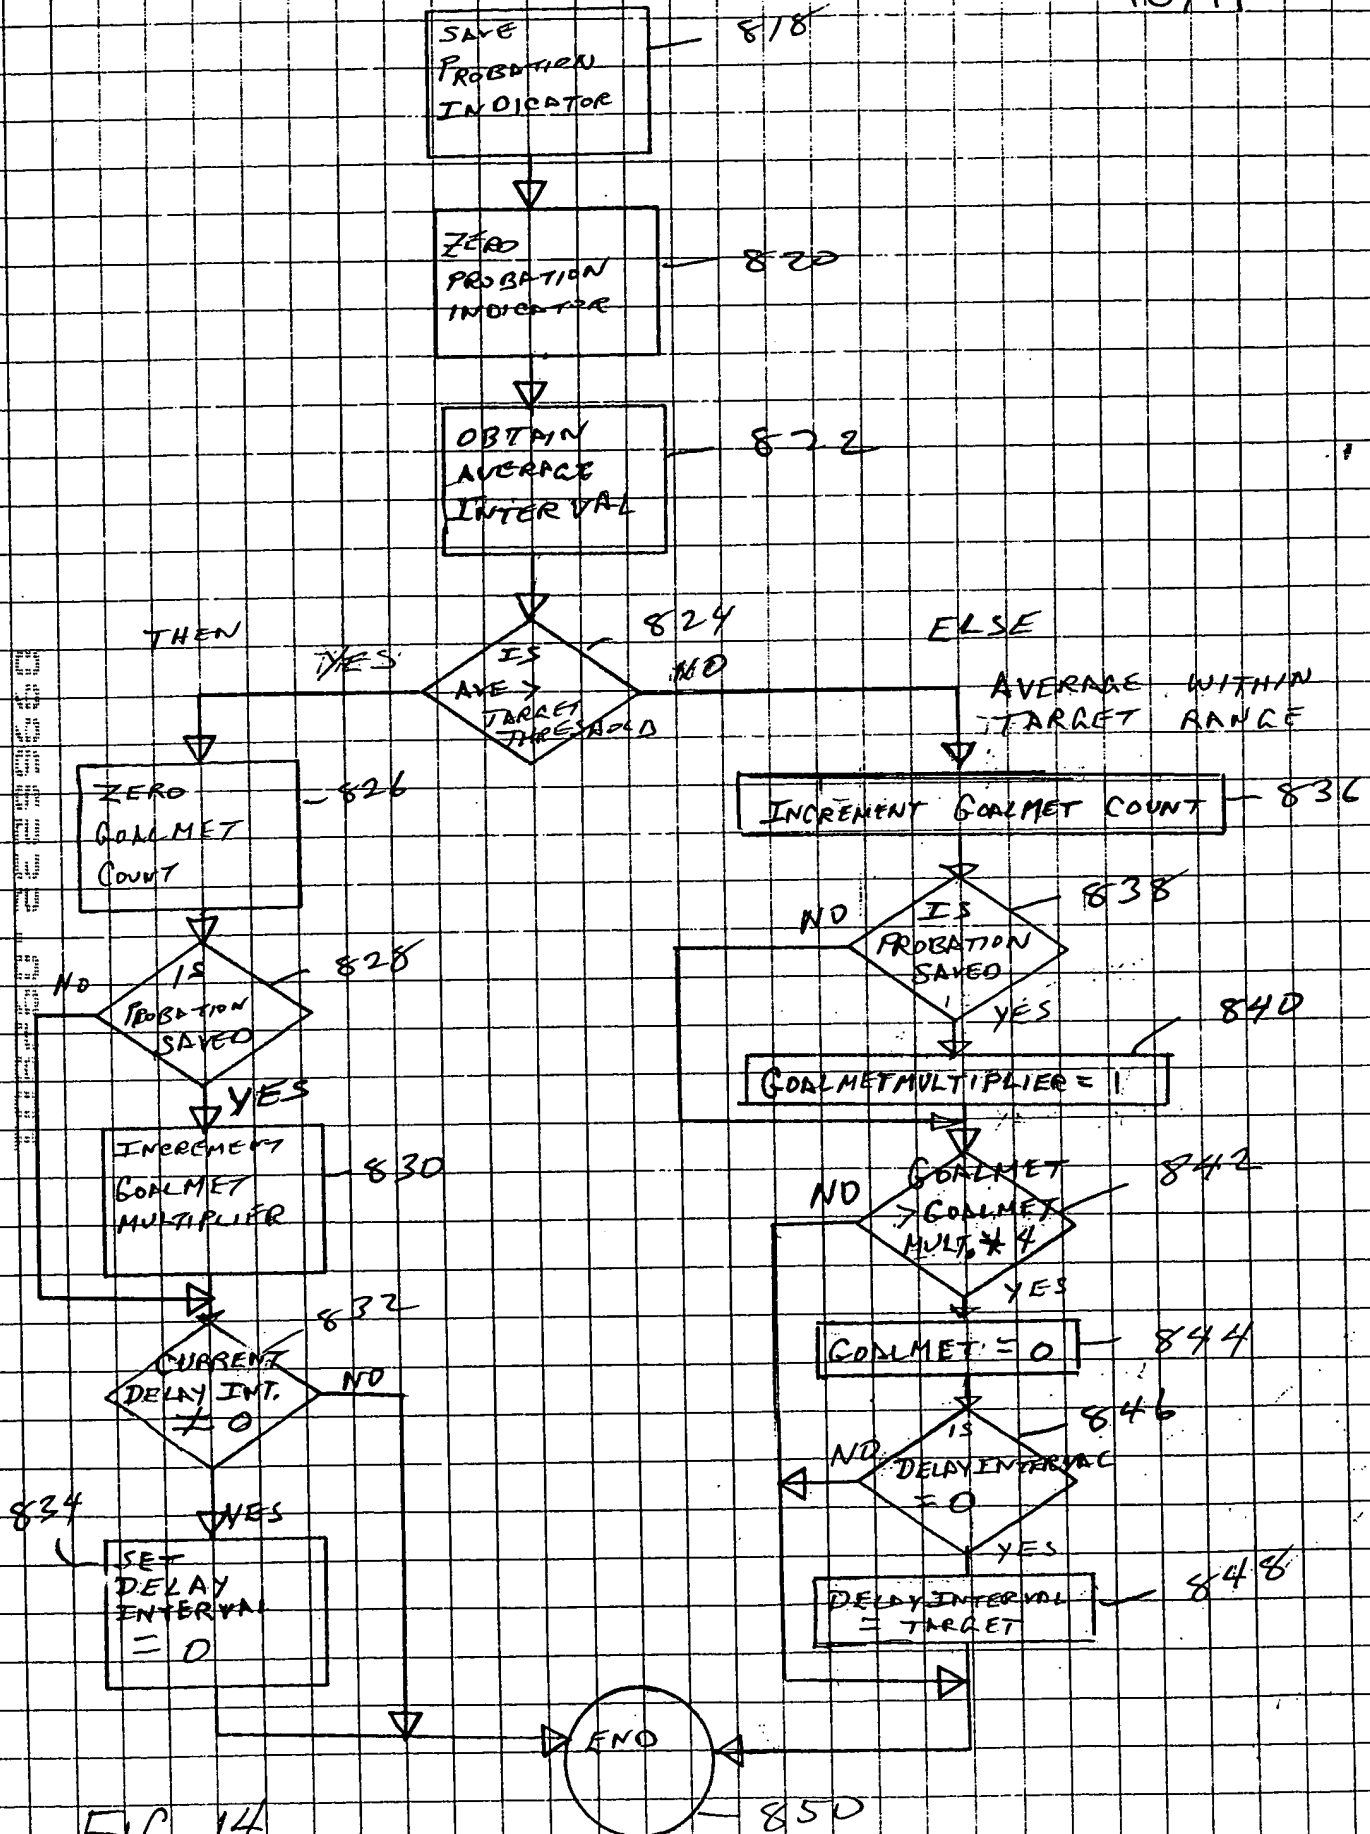 SAVE
PROBATION
INDICATOR
818
ZERO
PROBATION
INDICATOR
820
OBTAIN
AVERAGE
INTERVAL
822
824
IS
AVE >
TARGET
THRESHOLD
THEN
YES
NO
ELSE
AVERAGE WITHIN
TARGET RANGE
ZERO
GOALMET
COUNT
826
IS
PROBATION
SAVED
828
NO
YES
INCREMENT
GOALMET
MULTIPLIER
830
832
CURRENT
DELAY INT.
≠ 0
NO
YES
834
SET
DELAY
INTERVAL
= 0
INCREMENT GOALMET COUNT
836
838
IS
PROBATION
SAVED
NO
YES
840
GOALMETMULTIPLIER = 1
842
GOALMET
> GOALMET
MULT. * 4
NO
YES
GOALMET = 0
844
846
IS
DELAYINTERVAL
= 0
NO
YES
DELAYINTERVAL
= TARGET
848
END
850
FIG 14